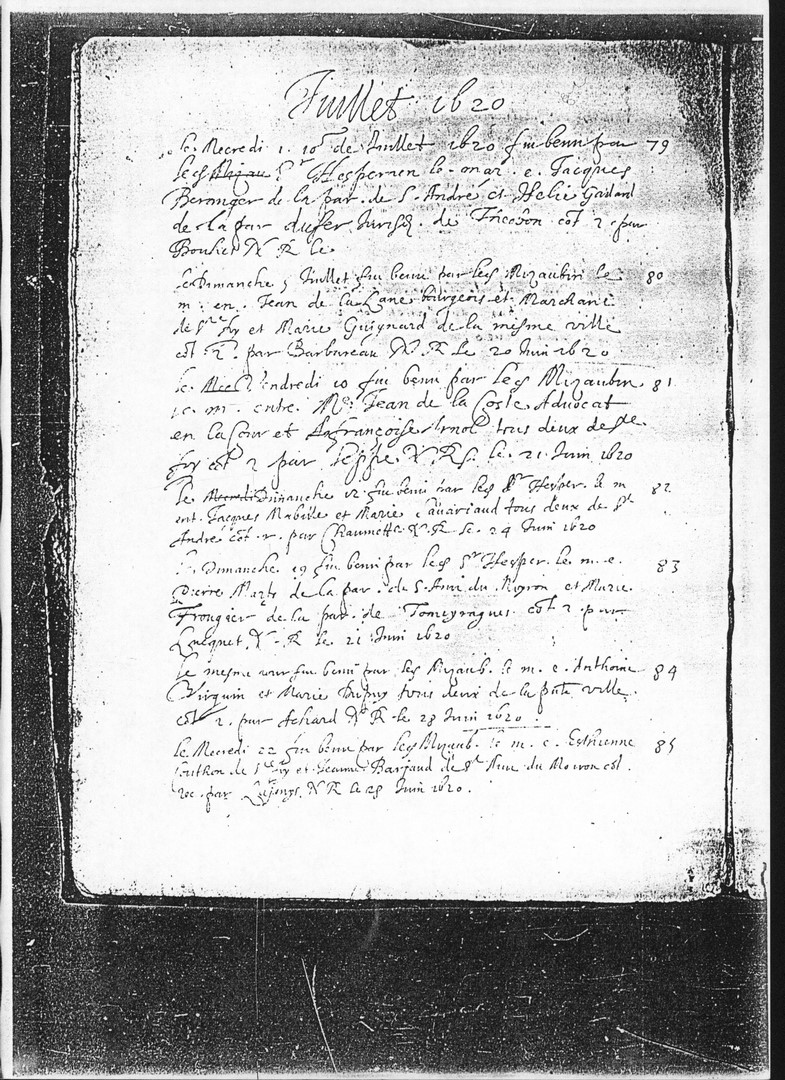 Juillet 1620
le Mecredi 1. jor de Juillet 1620 fu beni par 79
les Sr Hesperien le mar. e. Jacques
Beranger de la par. de S. André et Helie Gaslard
de la par du jurisd. de cōt 2 par
Bouhet N R le
le Dimanche 5 Juillet fu beni par les Mizaubin le 80
m. en. Jean de la Lane bourgeois et Marchant
de Ste foy et Marie Guignard de la mesme ville
cōt 2. par Barbureau N. R le 20 Juin 1620
le Vendredi 10 fu beni par les Mizaubin 81
le. m. entre. Me Jean de la Coste Advocat
en la Cour et françoise tous deux de Ste
foy cōt 2 par N. R. le. 21. Juin 1620
le Mecredi Dimanche 12 fu beni par les Sr Hesper. le m 82
ent. Jacques Mabille et Marie Cavariaud tous deux de St
André cōt. r. par Chaumette N. R le. 24 Juin 1620
le Dimanche 19 fu beni par les Sr Hesper. le. m. e. 83
Pierre de la par. de S. Avi du Moyron et Marie
Frougier de la par. de Tomeyragues cōt 2 par
Lucquet N. R le 21 Juin 1620
le mesme jour fu beni par les Mizaub. le m. e. Anthoine 84
et Marie Dupuy tous deux de la pnte ville
cōt 2. par N R le 28 Juin 1620.
le Mecredi 22 fu beni par les Myzaub. le m. e. Esthienne 85
de Ste foy et Jeanne Barjaud de St Avi du Moiron cōt.
rec. par N R le 28 Juin 1620.